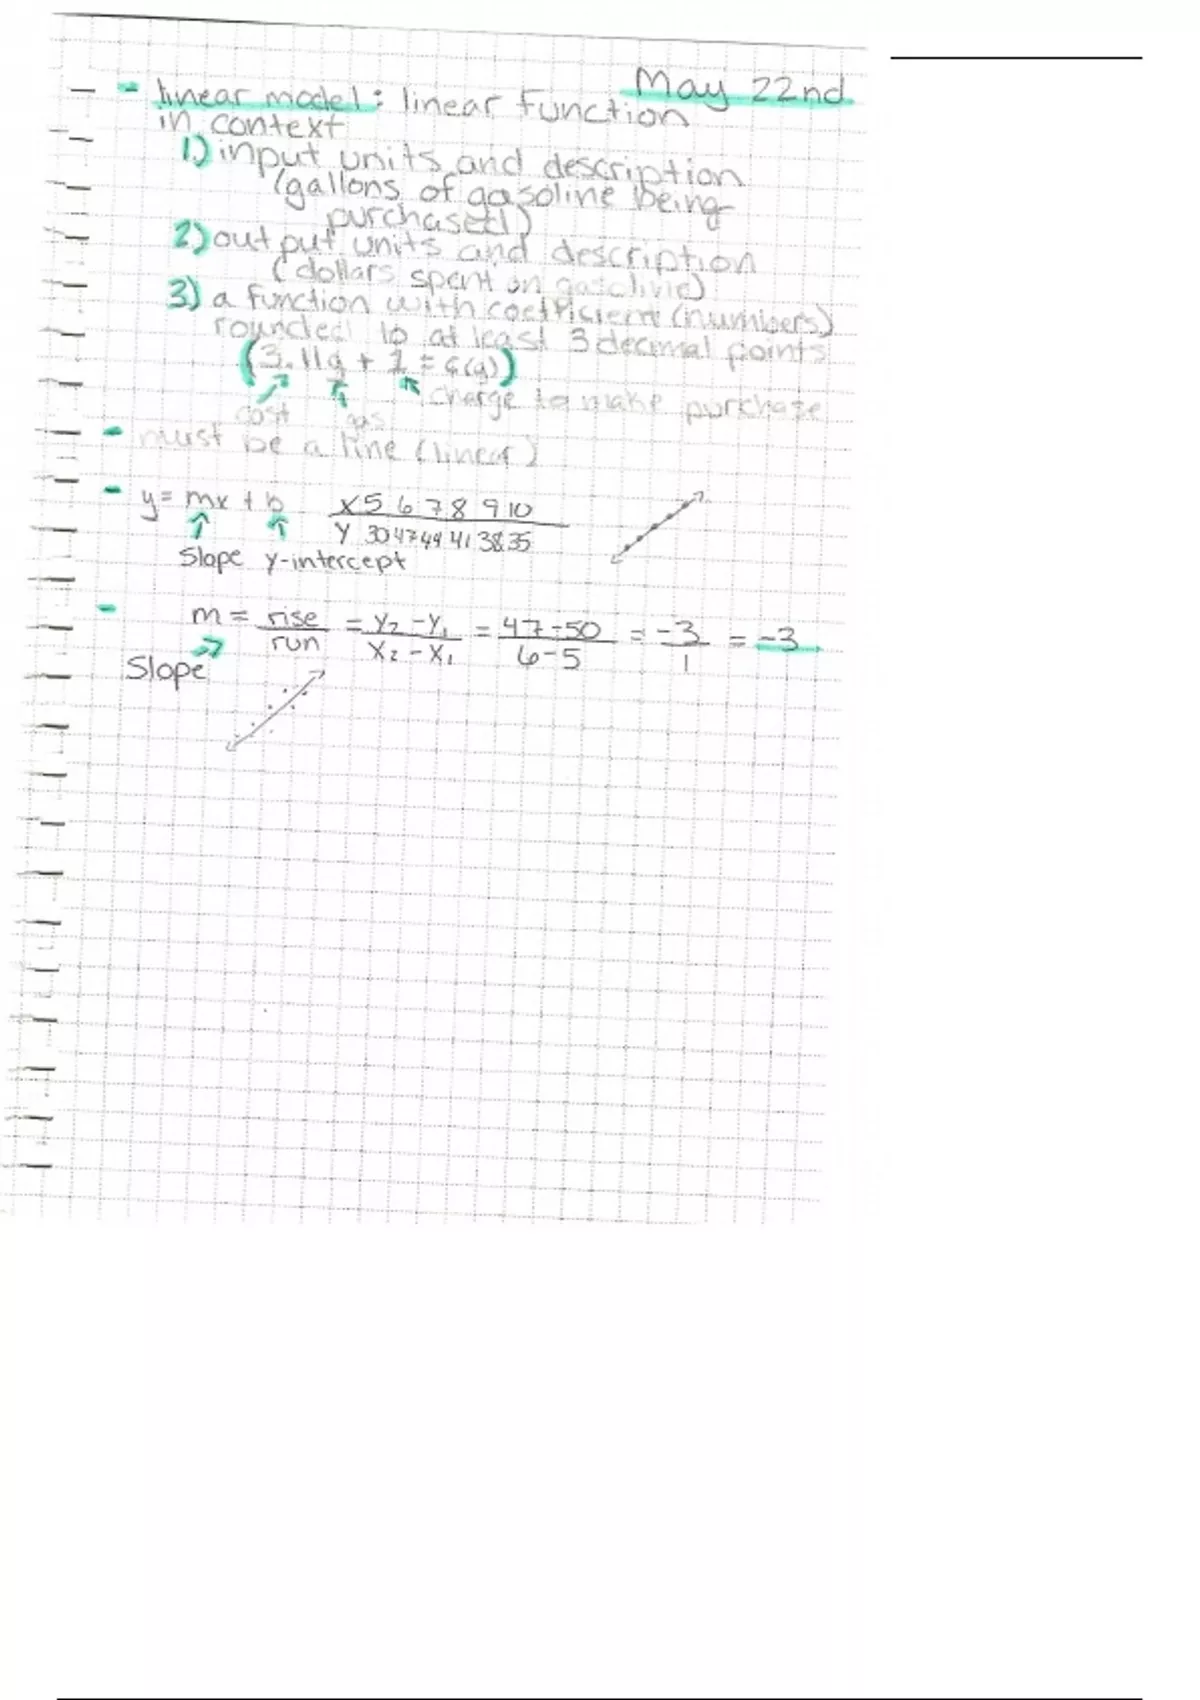 May 22nd
- linear model: linear function
in context
1.) input units and description
(gallons of gasoline being
purchased)
2) output units and description
(dollars spent on gasoline)
3) a function with coefficient (numbers)
rounded to at least 3 decimal points
(3.11g + 1 = c(g))
cost gas charge to make purchase
- must be a line (linear)
- y = mx + b
X 5 6 7 8 9 10
Y 30 47 44 41 38 35
slope y-intercept
- m = rise/run = y₂-y₁/x₂-x₁ = 47-50/6-5 = -3/1 = -3
Slope